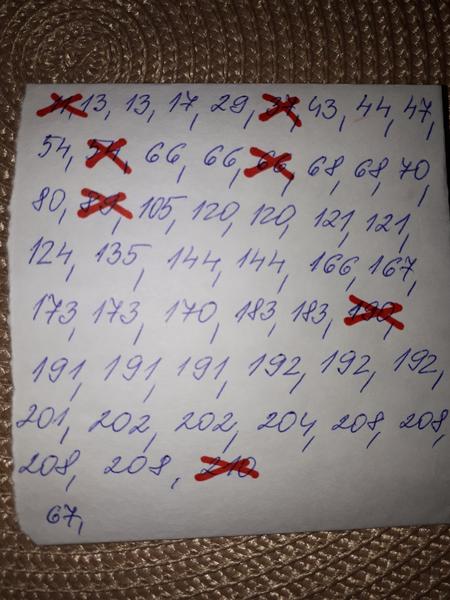 11, 13, 13, 17, 29, 37, 43, 44, 47,
54, 54, 66, 66, 66, 68, 68, 70,
80, 89, 105, 120, 120, 121, 121,
124, 135, 144, 144, 166, 167,
173, 173, 170, 183, 183, 190,
191, 191, 191, 192, 192, 192,
201, 202, 202, 204, 208, 208,
208, 208, 210
67,